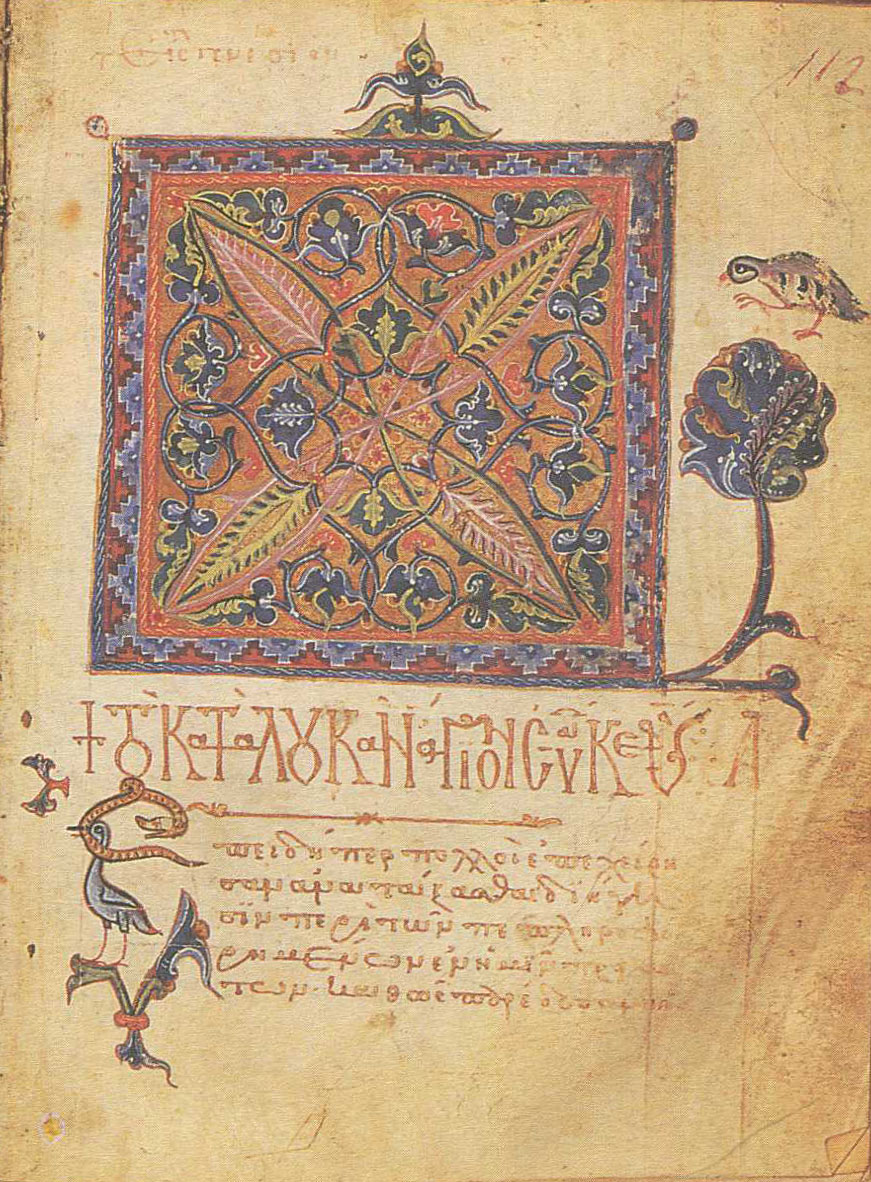 112
+ Τὸ κατὰ Λουκᾶν ἅγιον εὐα κεφ Α
Ἐπειδήπερ πολλοὶ ἐπεχείρη
σαν ἀνατάξασθαι διήγη
σϊν περὶ τῶν πεπληροφο
ρημένων ἐν ἡμῖν πραγμα
των· καθὼς παρέδοσαν